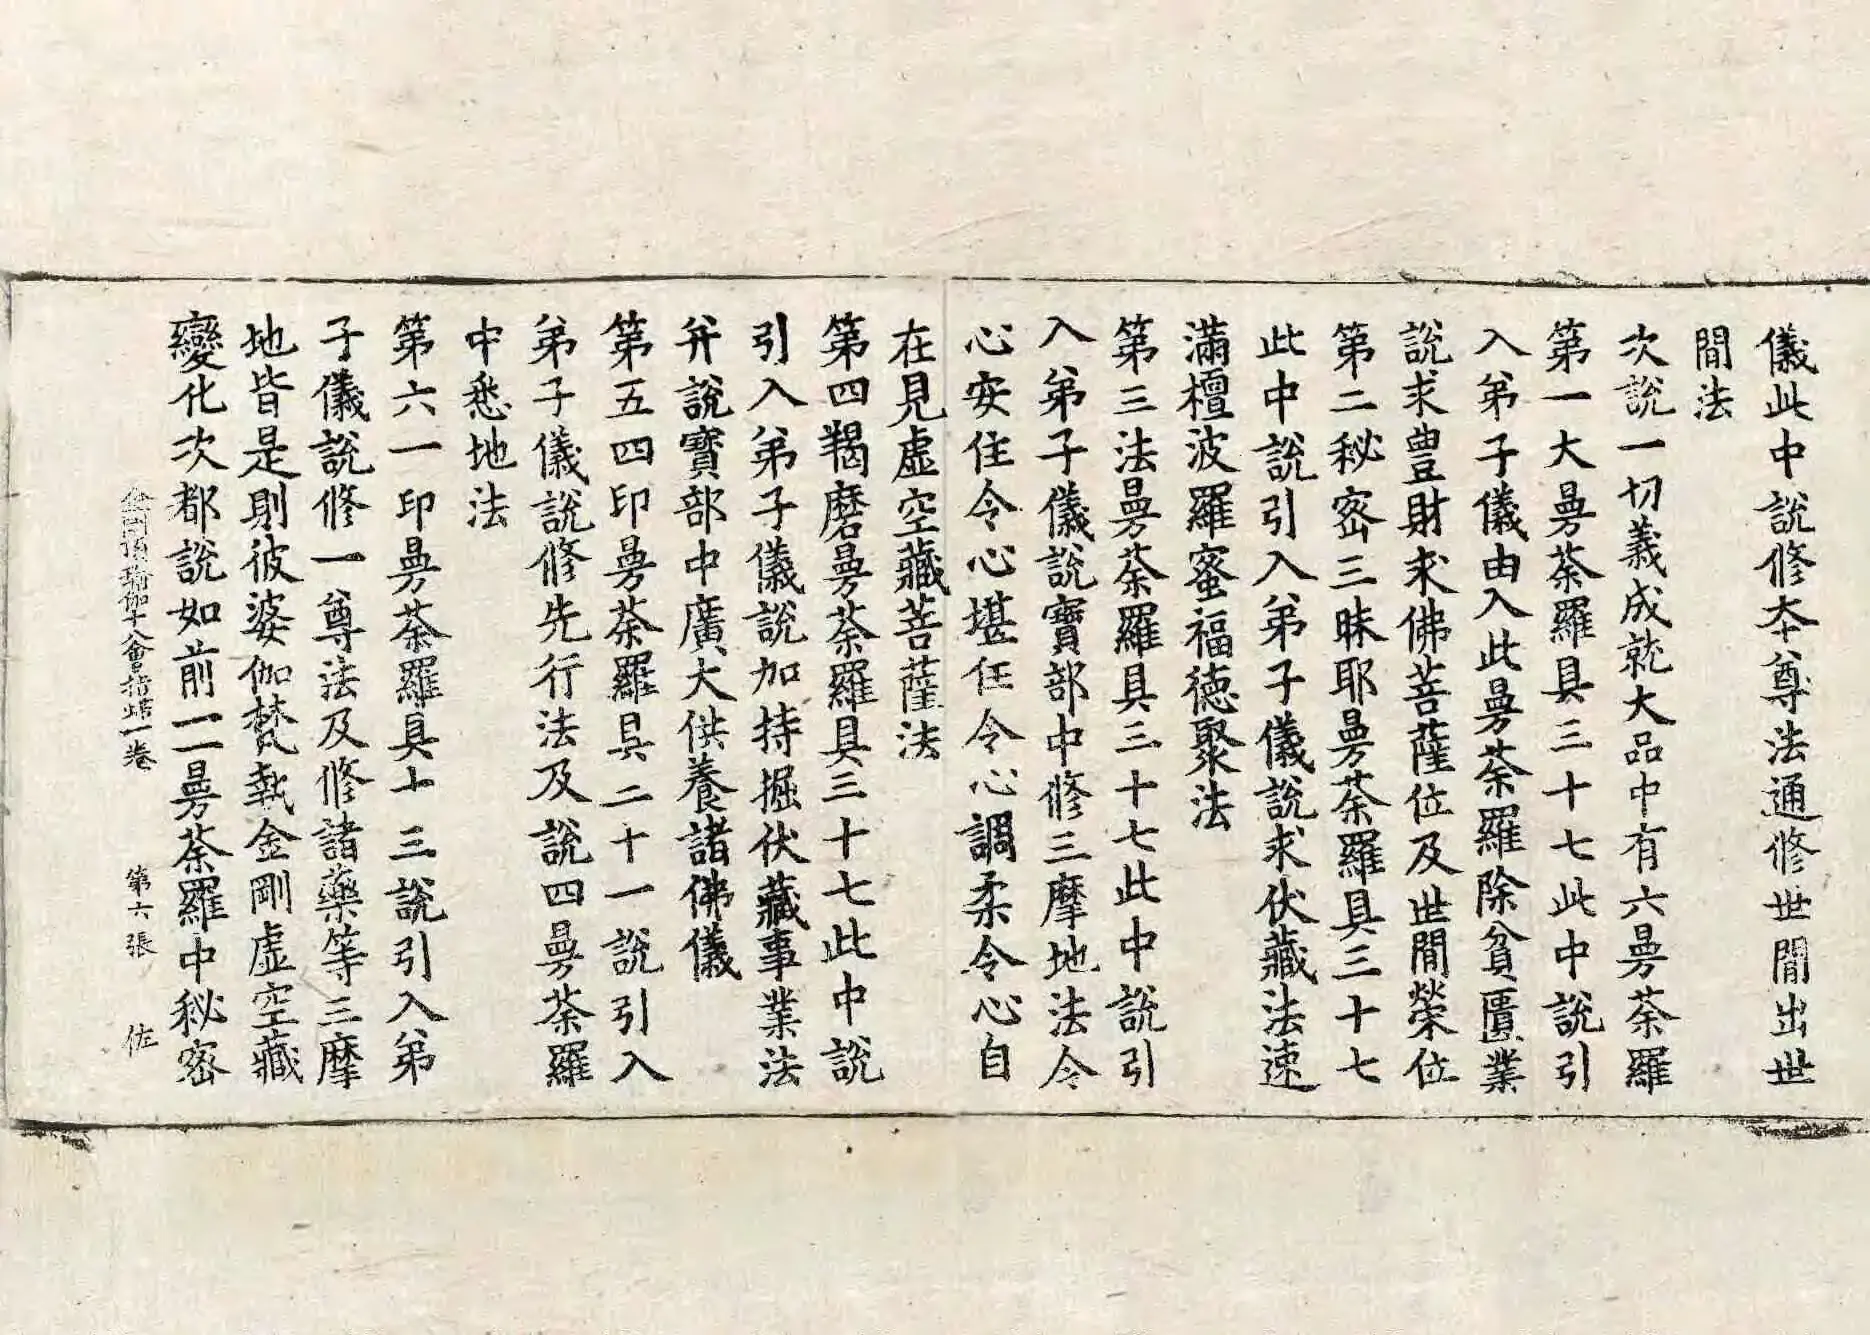 儀此中說修夲尊法通修世間出世
間法
次說一切義成就大品中有六曼荼羅
第一大曼荼羅具三十七此中說引
入弟子儀由入此曼荼羅除貧匱業
說求豊財求佛菩薩位及世間榮位
第二秘密三昧耶曼荼羅具三十七
此中說引入弟子儀說求伏藏法速
滿檀波羅蜜福德聚法
第三法曼荼羅具三十七此中說引
入弟子儀說寶部中修三摩地法令
心安住令心堪任令心調柔令心自
在見虛空藏菩薩法
第四羯磨曼荼羅具三十七此中說
引入弟子儀說加持掘伏藏事業法
并說寶部中廣大供養諸佛儀
第五四印曼荼羅具二十一說引入
弟子儀說修先行法及說四曼荼羅
中悉地法
第六一印曼荼羅具十三說引入弟
子儀說修一尊法及修諸藥等三摩
地皆是則彼婆伽梵執金剛虛空藏
變化次都說如前一一曼荼羅中秘密
金剛頂瑜伽十八會指歸一卷 第六張 佐